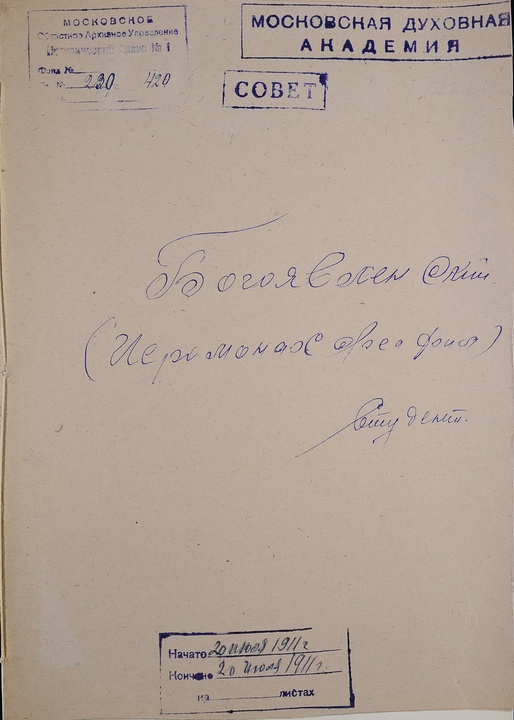 МОСКОВСКОЕ
Областное Архивное Управление
Исторический Архив № 1
Фонд №
№ 230 420
№
МОСКОВСКАЯ ДУХОВНАЯ
АКАДЕМИЯ
СОВЕТ
Богоявленский
(Иеромонах
Студент.
Начато 20 июля 1911 г
Кончено 20 июля 1911 г.
на листах